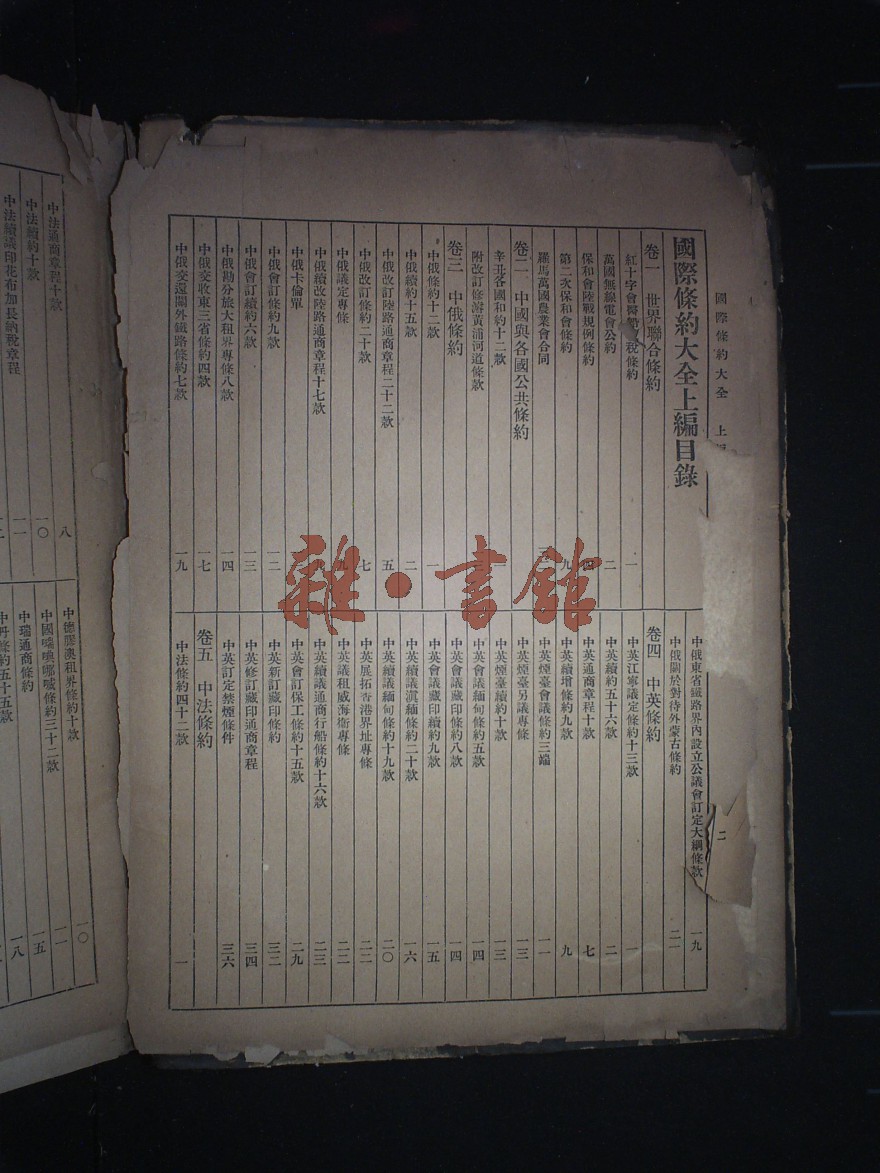 國際條約大全 上
二
國際條約大全上編目錄
卷一 世界聯合條約
紅十字會醫 稅條約 一
萬國無線電會公約 二
保和會陸戰規例條約 四
第二次保和會條約 九
羅馬萬國農業會合同
卷二 中國與各國公共條約
辛丑各國和約十二款
附改訂修濬黃浦河道條款
卷三 中俄條約
中俄條約十二款 一
中俄續約十五款 二
中俄改訂陸路通商章程二十二款 五
中俄改訂條約二十款 七
中俄議定專條 九
中俄續改陸路通商章程十七款
中俄卡倫單
中俄會訂條約九款 一二
中俄會訂續約六款 一三
中俄勘分旅大租界專條八款 一四
中俄交收東三省條約四款 一七
中俄交還關外鐵路條約七款 一九
中俄東省鐵路界內設立公議會訂定大綱條款 一九
中俄關於對待外蒙古條約 二一
卷四 中英條約
中英江寧議定條約十三款 一
中英續約五十六款 二
中英通商章程十款 七
中英續增條約九款 九
中英煙臺會議條約三端 一一
中英煙臺另議專條 一三
中英煙臺續約十款 一三
中英會議緬甸條約五款 一四
中英會議藏印條約八款 一四
中英會議藏印續約九款 一五
中英續議滇緬條約二十款 一六
中英續議緬甸條約十九款 二〇
中英展拓香港界址專條 二二
中英議租威海衛專條 二二
中英續議通商行船條約十六款 二三
中英會訂保工條約十五款 二九
中英新訂藏印條約 三二
中英修訂藏印通商章程 三四
中英訂定禁煙條件 三六
卷五 中法條約
中法條約四十二款 一
中法通商章程十款 八
中法續約十款 一〇
中法續議印花布加長納稅章程 一一
中德膠澳租界條約十款 一〇
中國瑞典哪噉條約三十二款 一一
中瑞通商條約 一五
中丹條約五十五款 一八
雜·書館